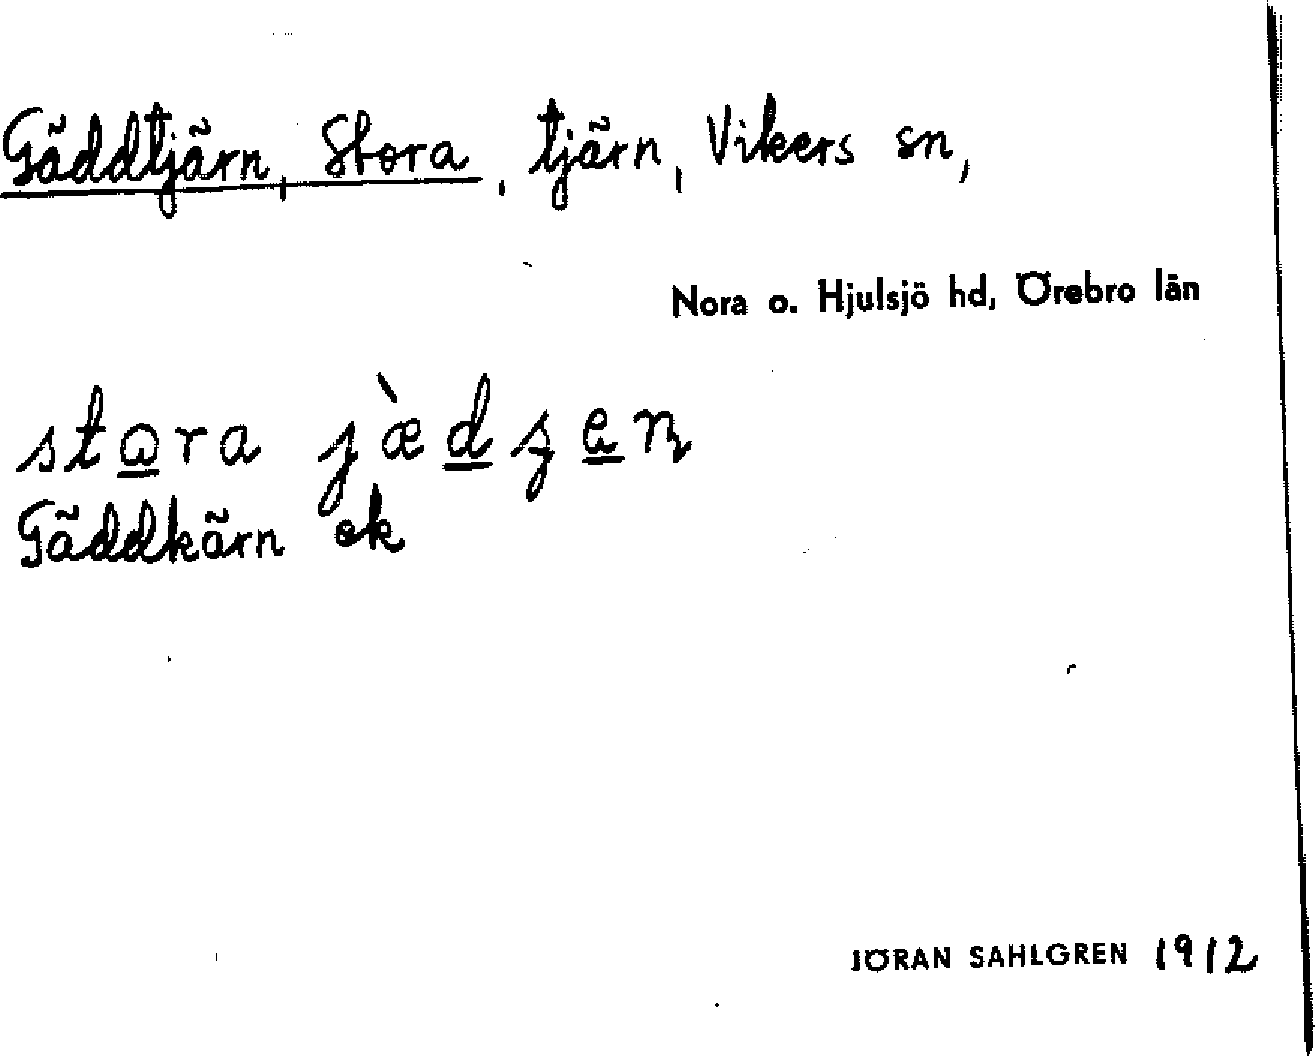 Gäddtjärn, Stora, tjärn, Vikers sn,
Nora o. Hjulsjö hd, Örebro län
stora
Gäddkärn ek
JÖRAN SAHLGREN 1912